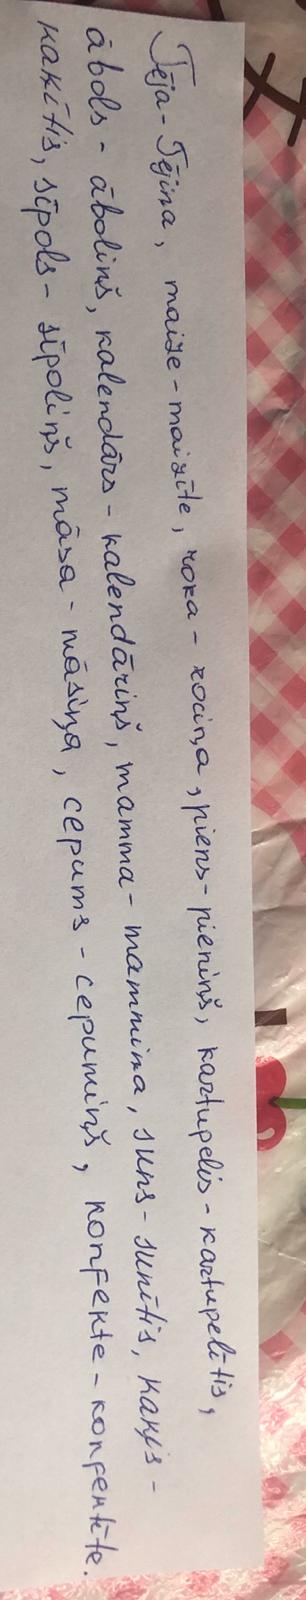 Tēja - Tējiņa, maize - maizīte, roka - rociņa, piens - pieniņš, kartupelis - kartupelītis,
ābols - āboliņš, kalendārs - kalendāriņš, mamma - mammiņa, suns - sunītis, kaķis -
kaķītis, sīpols - sīpoliņš, māsa - māsiņa, cepums - cepumiņš, konfekte - konfektīte.